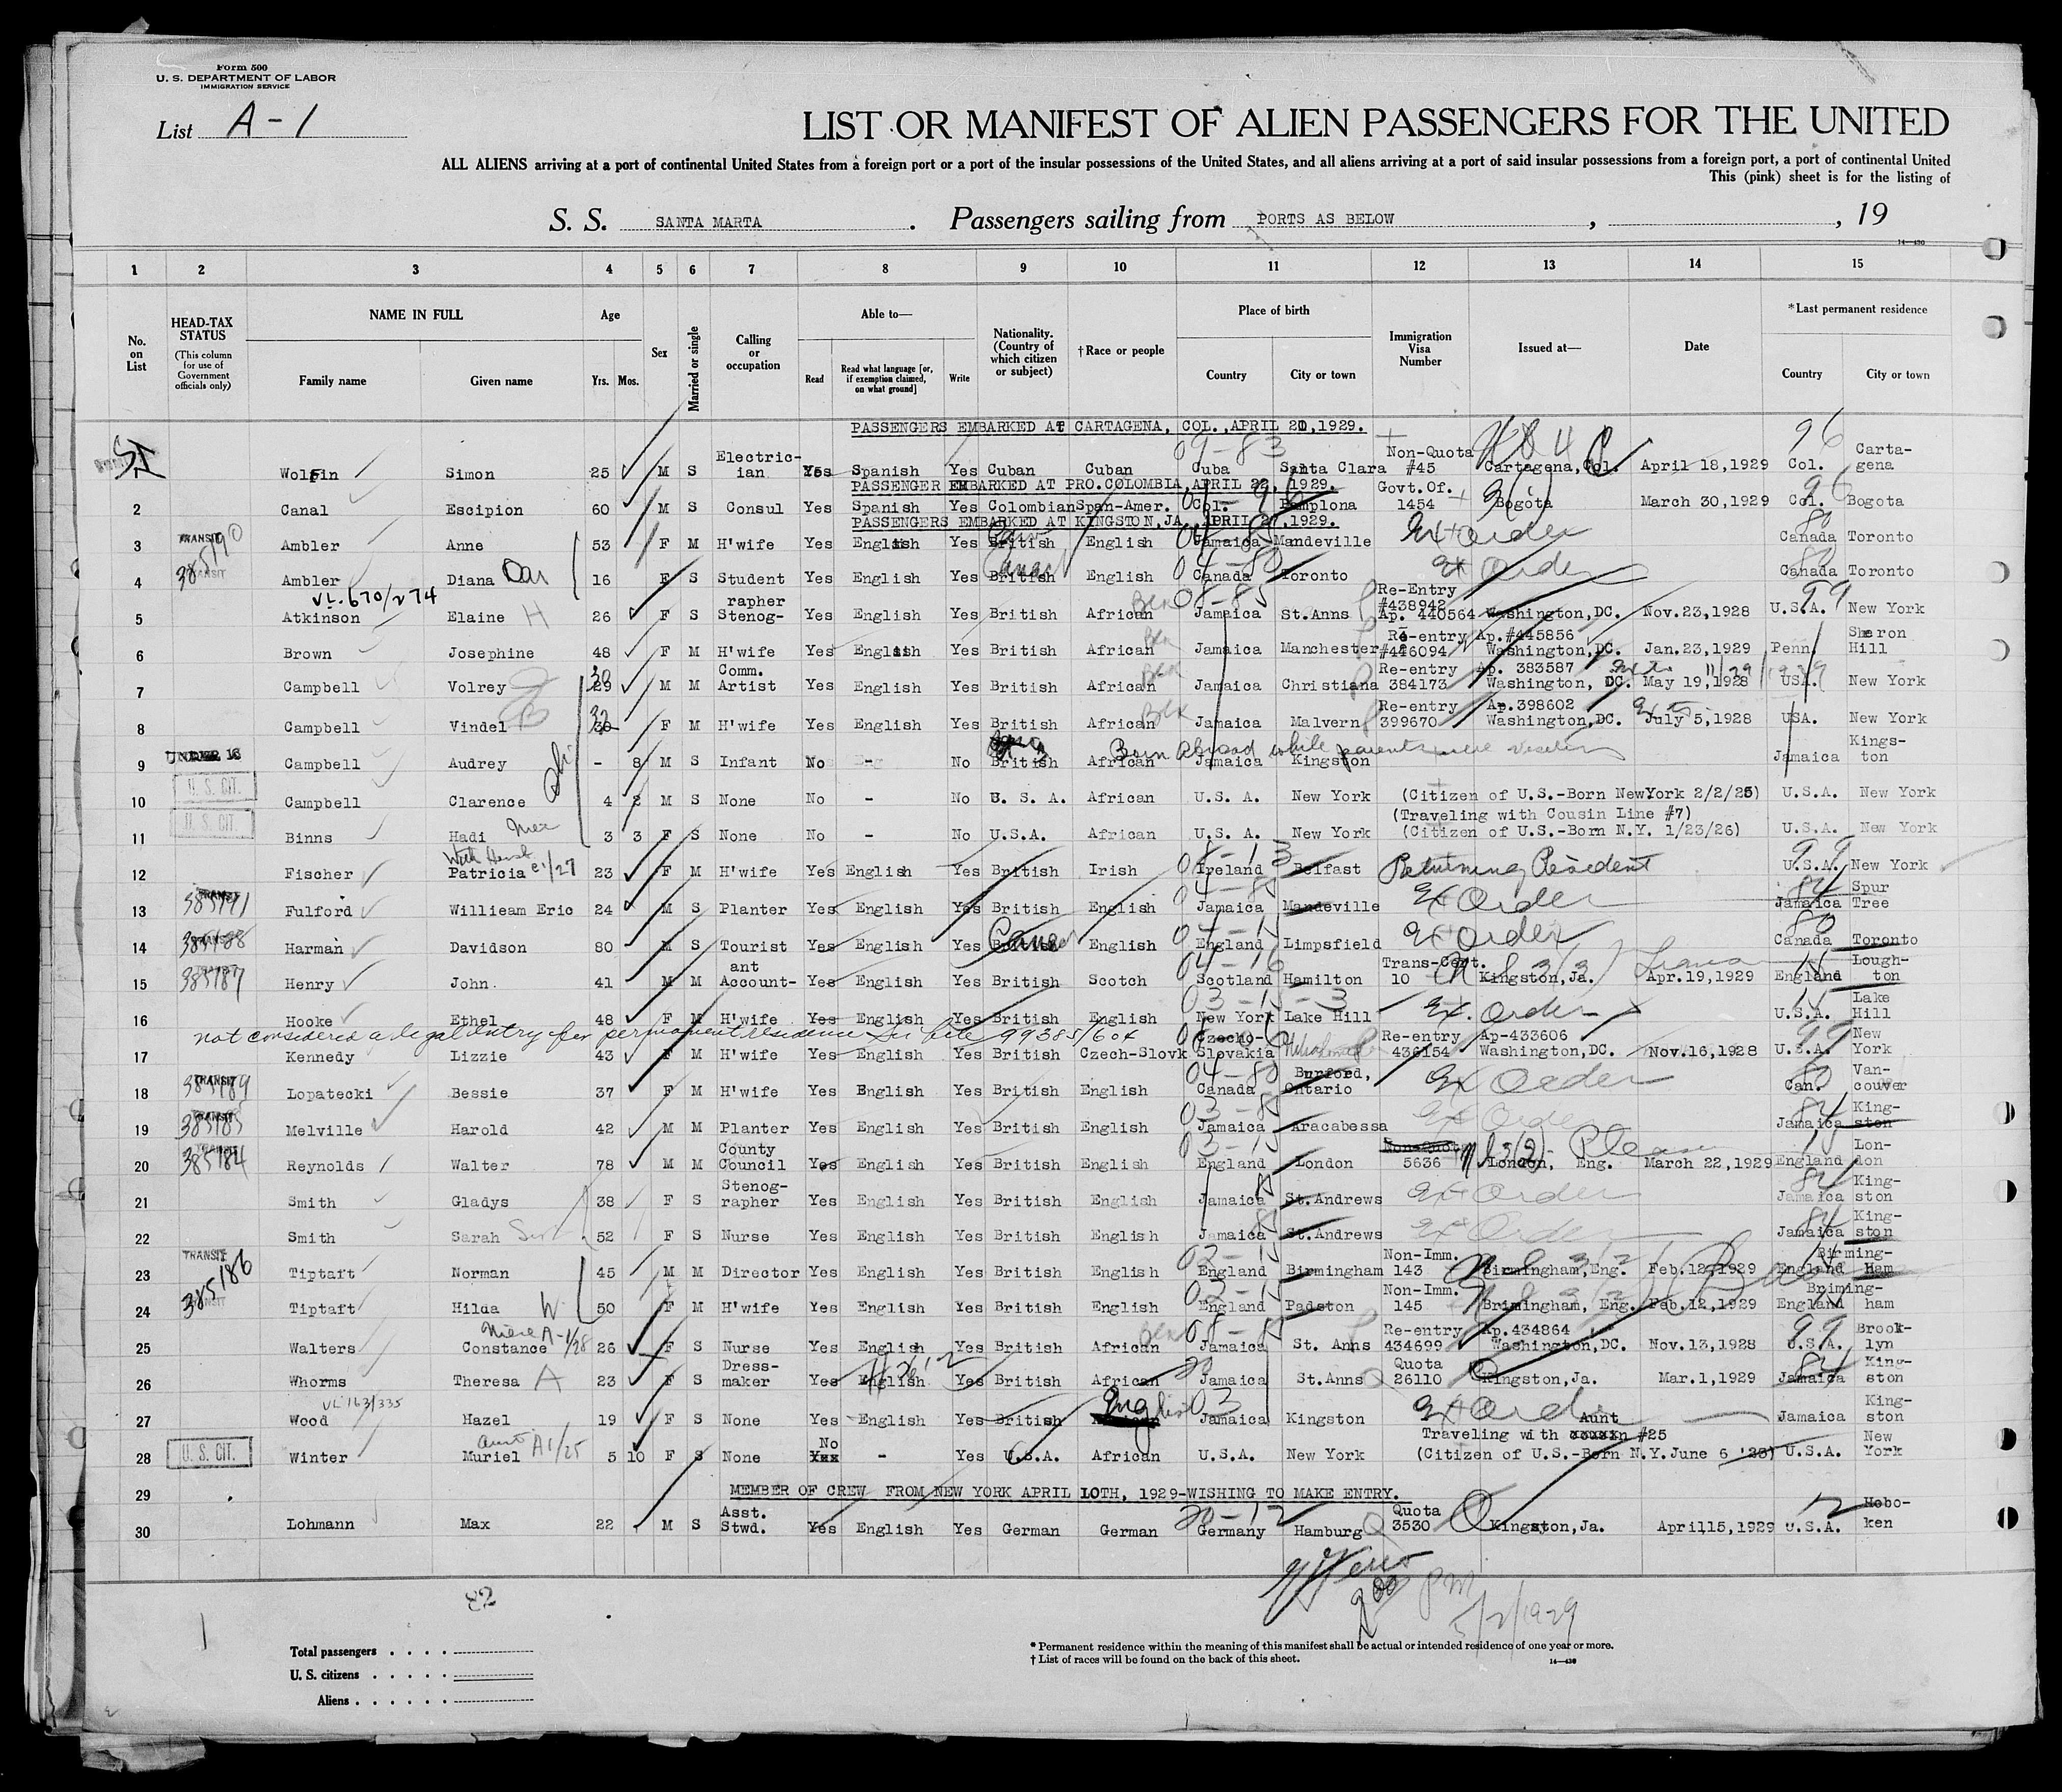 Form 500
U. S. DEPARTMENT OF LABOR
IMMIGRATION SERVICE
List A-1
LIST OR MANIFEST OF ALIEN PASSENGERS FOR THE UNITED
ALL ALIENS arriving at a port of continental United States from a foreign port or a port of the insular possessions of the United States, and all aliens arriving at a port of said insular possessions from a foreign port, a port of continental United
This (pink) sheet is for the listing of
S. S. SANTA MARTA. Passengers sailing from PORTS AS BELOW, , 19
14-430
1 2 3 4 5 6 7 8 9 10 11 12 13 14 15
No. on List
HEAD-TAX STATUS (This column for use of Government officials only)
NAME IN FULL
Family name Given name
Age
Yrs. Mos.
Sex
Married or single
Calling or occupation
Able to—
Read
Read what language [or, if exemption claimed, on what ground]
Write
Nationality. (Country of which citizen or subject)
†Race or people
Place of birth
Country City or town
Immigration Visa Number
Issued at—
Date
*Last permanent residence
Country City or town
PASSENGERS EMBARKED AT CARTAGENA, COL., APRIL 20,1929.
SI Wolfin Simon 25 M S Electric-ian Yes Spanish Yes Cuban Cuban Cuba Santa Clara Non-Quota #45 Cartagena, Col. April 18,1929 Col. Carta-gena
PASSENGER EMBARKED AT PRO.COLOMBIA APRIL 22, 1929.
2 Canal Escipion 60 M S Consul Yes Spanish Yes Colombian Span-Amer. Col. Pamplona Govt.Of. 1454 Bogota March 30,1929 Col. Bogota
PASSENGERS EMBARKED AT KINGSTON,JA. APRIL 2 ,1929.
3 TRANSIT 385190 Ambler Anne 53 F M H'wife Yes English Yes British English Jamaica Mandeville Ex Order Canada Toronto
4 TRANSIT Ambler Diana Dau 16 F S Student Yes English Yes British English Canada Toronto Ex Order Canada Toronto
VL.670/274
5 Atkinson Elaine H 26 F S Stenog-rapher Yes English Yes British African Blk Jamaica St.Anns Re-Entry #438942 Ap. 440564 Washington,DC. Nov.23,1928 U.S.A. New York
6 Brown Josephine 48 F M H'wife Yes English Yes British African Blk Jamaica Manchester Re-entry Ap.#445856 #446094 Washington,DC. Jan.23,1929 Penn. Sharon Hill
7 Campbell Volrey 29 30 M M Comm. Artist Yes English Yes British African Blk Jamaica Christiana Re-entry Ap. 383587 384173 Washington, DC. May 19,1928 USA. New York
8 Campbell Vindel 30 F M H'wife Yes English Yes British African Blk Jamaica Malvern Re-entry Ap.398602 399670 Washington,DC. July 5,1928 USA. New York
Born abroad while parents were visiting
9 UNDER 16 Campbell Audrey - 8 M S Infant No - No British African Jamaica Kingston Jamaica Kings-ton
10 U. S. CIT. Campbell Clarence 4 2 M S None No - No U. S. A. African U.S. A. New York (Citizen of U.S.-Born NewYork 2/2/25) U.S.A. New York
(Traveling with Cousin Line #7)
11 U. S. CIT. Binns Hadi Niece 3 3 F S None No - No U.S.A. African U.S. A. New York (Citizen of U.S.-Born N.Y. 1/23/26) U.S.A. New York
12 Fischer Patricia 23 F M H'wife Yes English Yes British Irish Ireland Belfast Returning Resident U.S.A. New York
13 Fulford Willieam Eric 24 M S Planter Yes English Yes British English Jamaica Mandeville Ex Order Jamaica Spur Tree
14 Harman Davidson 80 M S Tourist Yes English Yes British English England Limpsfield Ex Order Canada Toronto
15 TRANSIT 385187 Henry John 41 M M Account-ant Yes English Yes British Scotch Scotland Hamilton Trans-Cert. 10 Kingston,Ja. Apr.19,1929 England Lough-ton
16 Hooke Ethel 48 F M H'wife Yes English Yes British English New York Lake Hill Ex. Order U.S.A. Lake Hill
not considered a legal entry for permanent residence See file 99385/604
17 Kennedy Lizzie 43 F M H'wife Yes English Yes British Czech-Slovk Czecho-Slovakia Re-entry Ap-433606 436154 Washington,DC. Nov.16,1928 U.S.A. New York
18 TRANSIT 385189 Lopatecki Bessie 37 F M H'wife Yes English Yes British English Canada Burford, Ontario Ex Order Can. Van-couver
19 TRANSIT 385185 Melville Harold 42 M M Planter Yes English Yes British English Jamaica Aracabessa Ex Order Jamaica King-ston
20 TRANSIT 385184 Reynolds Walter 78 M M County Council Yes English Yes British English England London Non-Quota 5636 London, Eng. March 22,1929 England Lon-don
21 Smith Gladys 38 F S Stenog-rapher Yes English Yes British English Jamaica St.Andrews Ex Order Jamaica King-ston
22 Smith Sarah 52 F S Nurse Yes English Yes British English Jamaica St.Andrews Ex Order Jamaica King-ston
23 TRANSIT 385186 Tiptaft Norman 45 M M Director Yes English Yes British English England Birmingham Non-Imm. 143 Birmingham,Eng. Feb.12,1929 England Birming-Ham
24 TRANSIT Tiptaft Hilda W 50 F M H'wife Yes English Yes British English England Padston Non-Imm. 145 Brimingham, Eng. Feb.12,1929 England Briming-ham
25 Walters Constance Niece A-1/28 26 F S Nurse Yes English Yes British African Blk Jamaica St. Anns Re-entry Ap.434864 434699 Washington,DC. Nov.13,1928 U.S.A. Brook-lyn
26 Whorms Theresa A 23 F S Dress-maker Yes English Yes British African Jamaica St.Anns Quota 26110 Kingston,Ja. Mar.1,1929 Jamaica King-ston
VL 163/335
27 Wood Hazel 19 F S None Yes English Yes British English Jamaica Kingston Ex Order Jamaica King-ston
Traveling with Aunt #25
28 U. S. CIT. Winter Muriel Aunt A1/25 5 10 F S None No - Yes U.S.A. African U.S.A. New York (Citizen of U.S.-Born N.Y.June 6 '23) U.S.A. New York
29 MEMBER OF CREW FROM NEW YORK APRIL 10TH, 1929-WISHING TO MAKE ENTRY.
30 Lohmann Max 22 M S Asst. Stwd. Yes English Yes German German Germany Hamburg Quota 3530 Kingston,Ja. April,15,1929 U.S.A. Hobo-ken
200 PM
5/2/1929
82
Total passengers
U. S. citizens
Aliens
* Permanent residence within the meaning of this manifest shall be actual or intended residence of one year or more.
† List of races will be found on the back of this sheet.
14-430